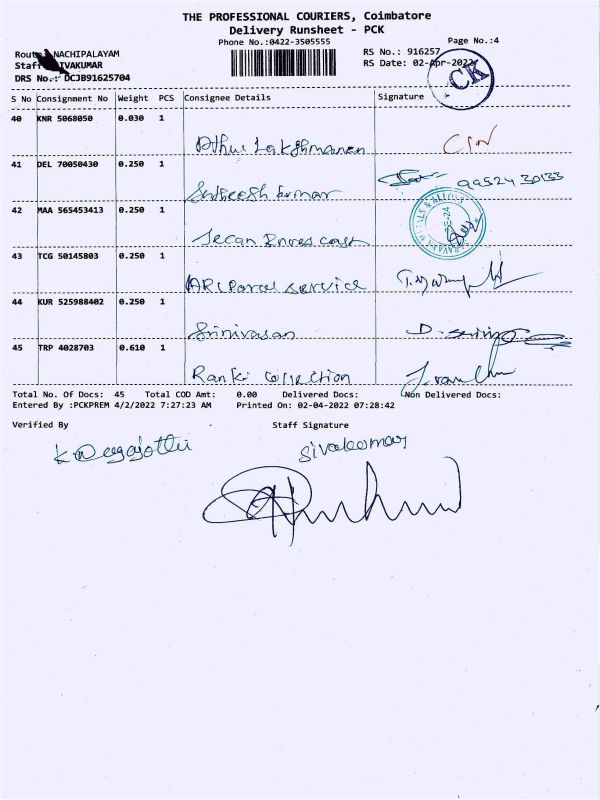 THE PROFESSIONAL COURIERS, Coimbatore
Delivery Runsheet - PCK
Phone No.:0422-3505555
Page No.:4
Route: NACHIPALAYAM
RS No.: 916257
Staff IVAKUMAR
RS Date: 02-Apr-2022
DRS No.: DCJB91625704
CK
S No Consignment No Weight PCS Consignee Details Signature
40 KNR 5068050 0.030 1
Athu Lakshmanan
41 DEL 70050430 0.250 1
Sutheesh kumar 9952430133
42 MAA 565453413 0.250 1
43 TCG 50145803 0.250 1
ARC Parcal service
44 KUR 525988402 0.250 1
Srinivasan
45 TRP 4028703 0.610 1
Total No. Of Docs: 45 Total COD Amt: 0.00 Delivered Docs: Non Delivered Docs:
Entered By :PCKPREM 4/2/2022 7:27:23 AM Printed On: 02-04-2022 07:28:42
Verified By Staff Signature
Sivakumar